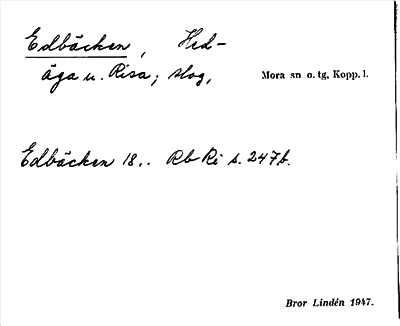 Edbäcken, Hed-
äga u. Risa; slog,
Mora sn o. tg, Kopp. l.
Edbäcken 18.. Rb Ri s. 247b.
Bror Lindén 1947.